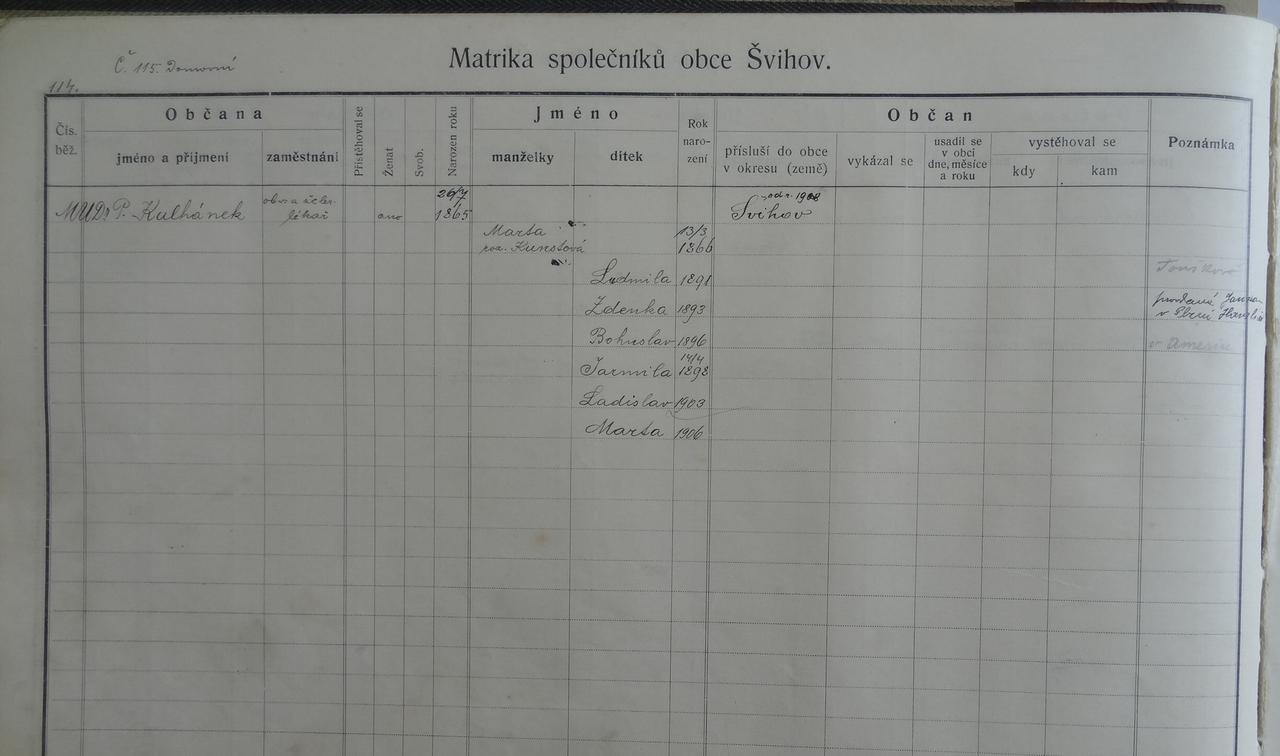 Matrika společníků obce Švihov.
Č. 115. Domovní
114.
Čís. běž.
Občana
jméno a příjmení
zaměstnání
Přistěhoval se
Ženat
Svob.
Narozen roku
Jméno
manželky
dítek
Rok naro- zení
Občan
přísluší do obce v okresu (země)
vykázal se
usadil se v obci dne, měsíce a roku
vystěhoval se
kdy
kam
Poznámka
MUDr P. Kulhánek
lékař
ano
26/7 1865
od r. 1908
Švihov
Marta 13/3
roz. Kunstová 1866
Ludmila 1891
Zdenka 1893
v Plzni
Bohuslav 1896
v Americe
14/4
Jarmila 1898
Ladislav 1903
Marta 1906